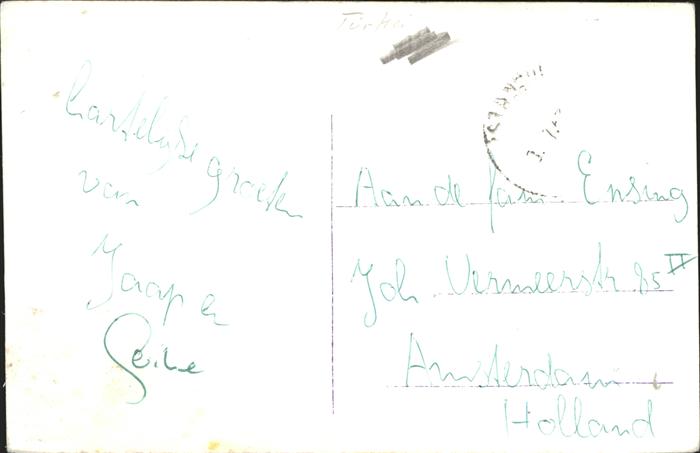 Türkei
hartelijke groeten
van
Jaap en
Aan de fam. Ensing
Joh. Vermeerstr 85 II
Amsterdam
Holland